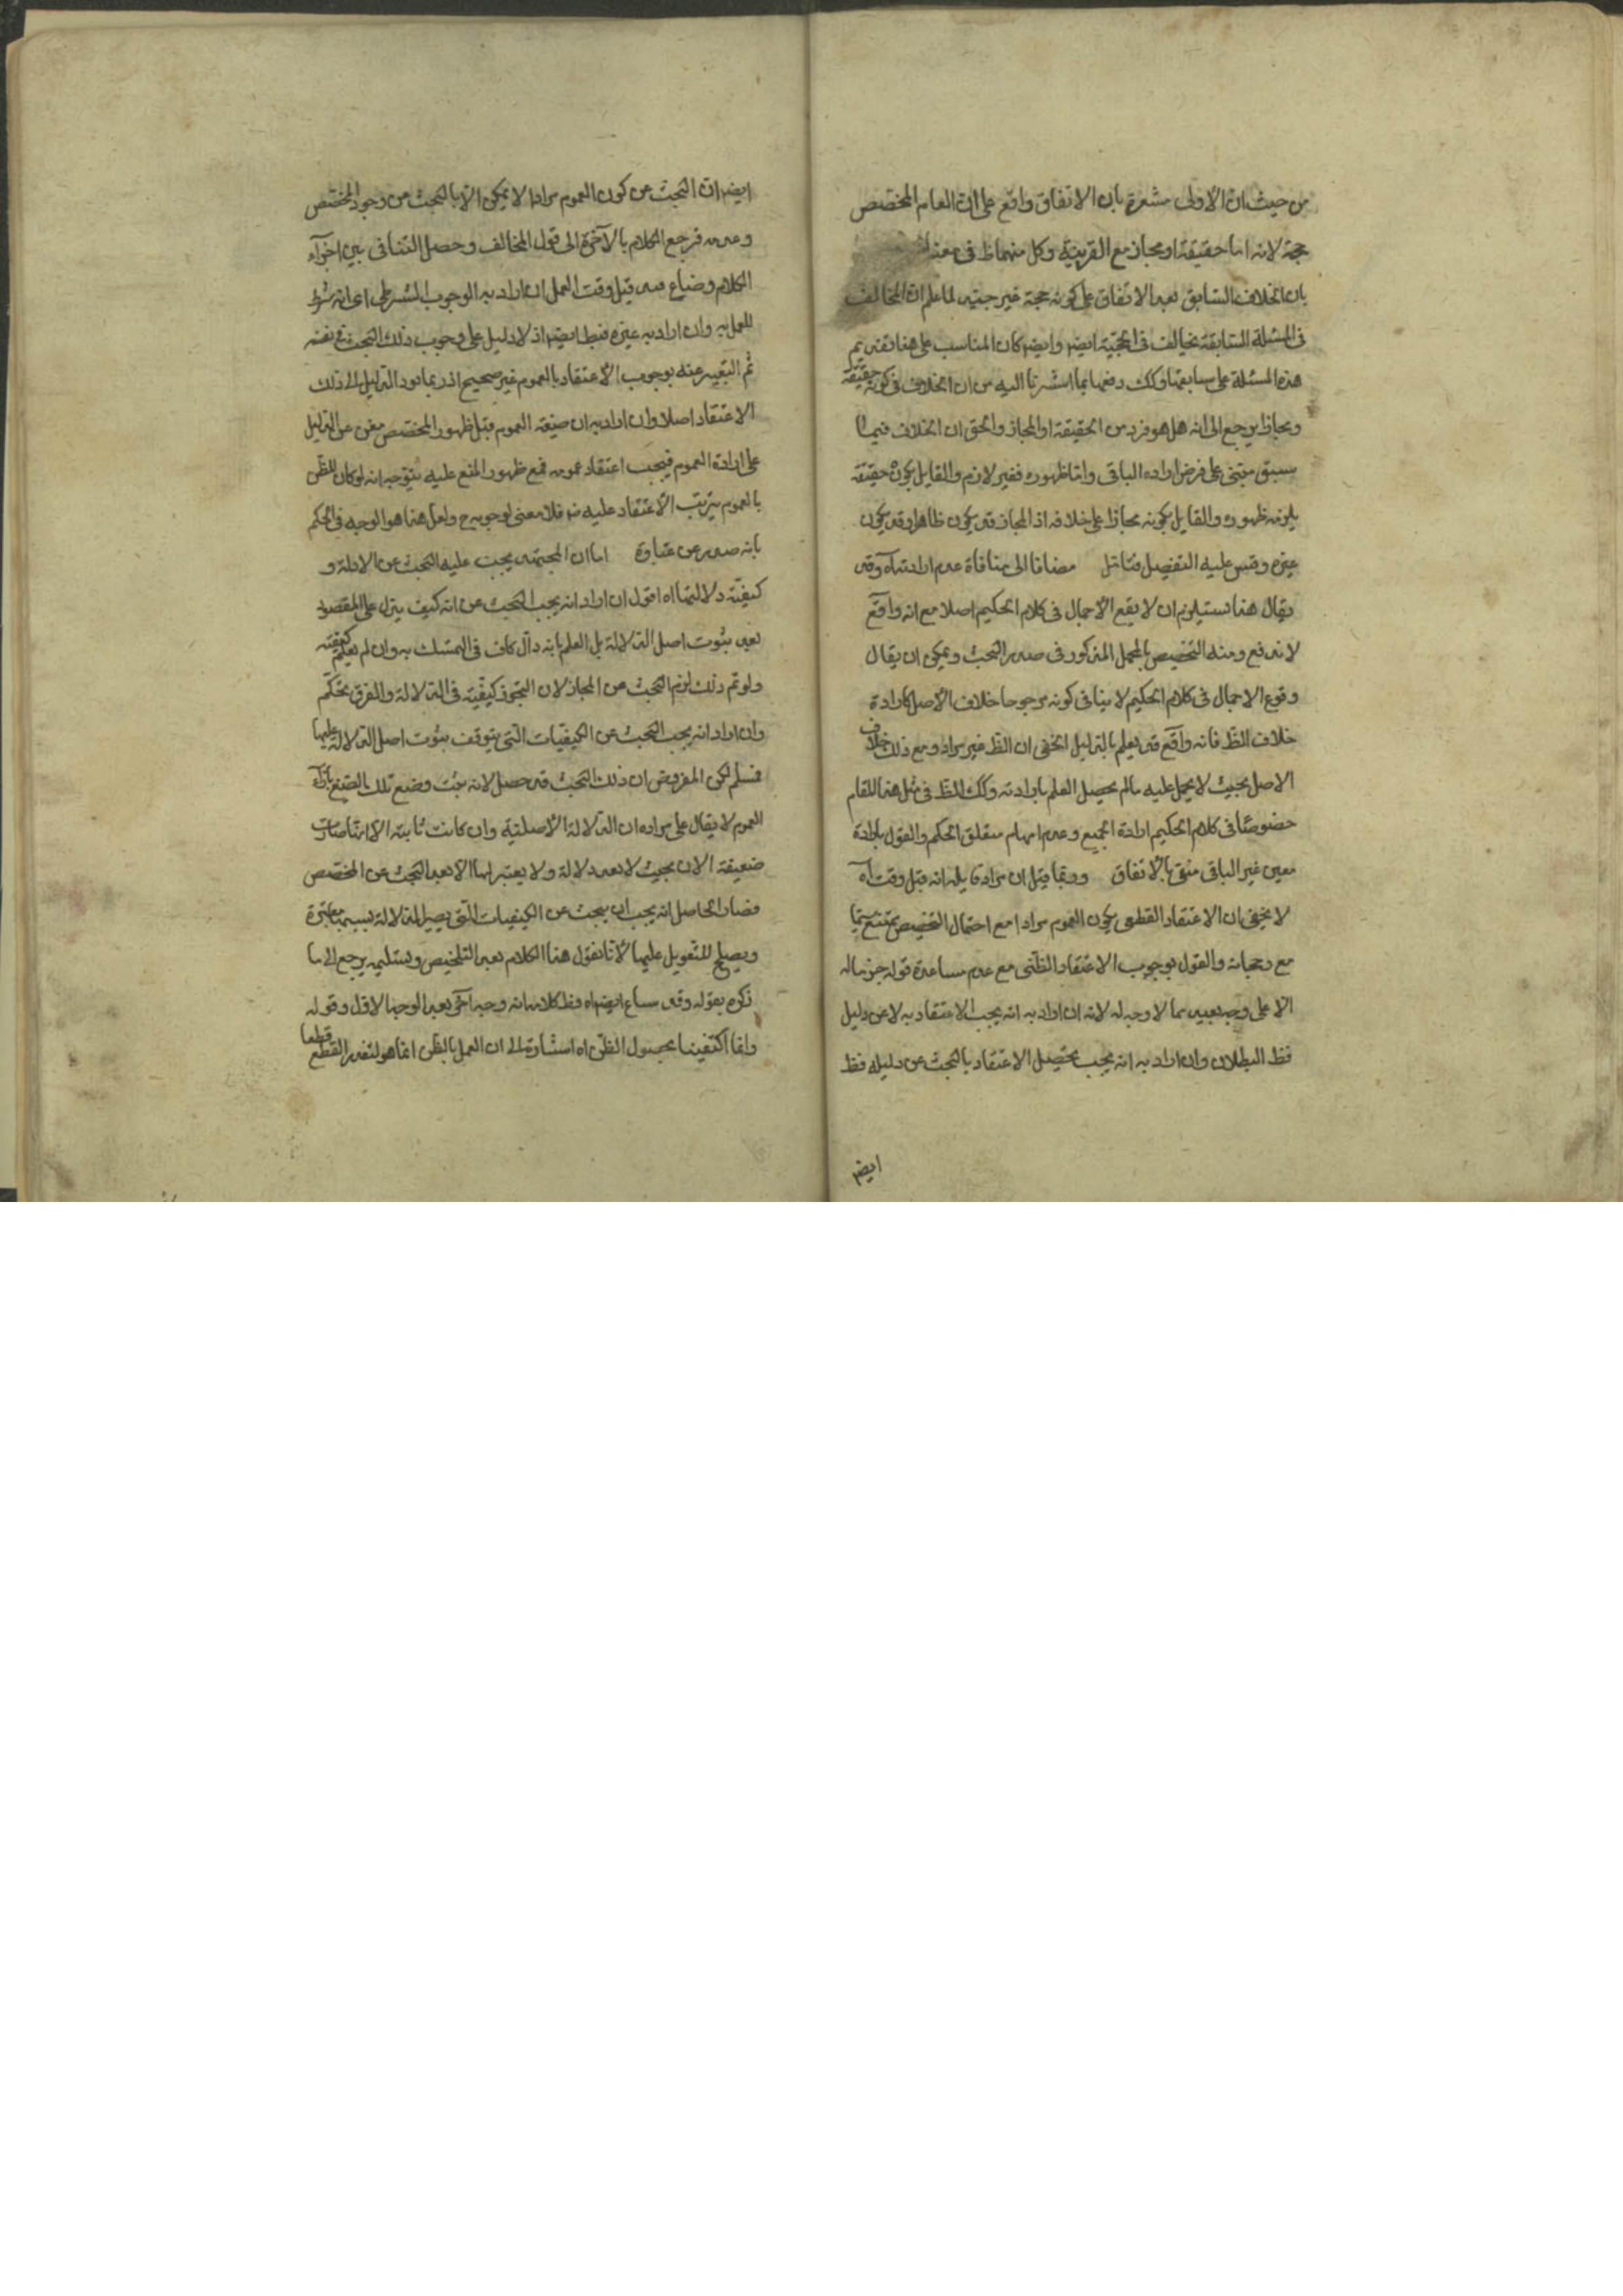 من حيث ان الاولى مشعرة بان الاتفاق واقع على ان العام المخصص
حجة لانه اما حقيقة او مجاز مع القرينة وكل منهما ظ فى معناه
بان الخلاف السابق بعد الاتفاق على كونه حجة غير جيد لما علم ان المخالف
فى المسئلة السابقة يخالف فى الحجية ايضا وايضا كان المناسب على هذا تقديم
هذه المسئلة على سابقتها وكك دفعها بما اشرنا اليه من ان الخلاف فى كونه حقيقة
ومجازا يرجع الى انه هل هو فرد من الحقيقة او المجاز والحق ان الخلاف فيما
سبق مبتنى على فرض اراده الباقى واما ظهوره فغير لازم والقايل بكونه حقيقة
يلزمه ظهوره والقايل بكونه مجازا على خلافه اذ المجاز قد يكون ظاهرا وقد يكون
غيره وقس عليه التفصيل فتامل مضافا الى منافاة عدم ارادته اه وقد
يقال هذا يستلزم ان لا يقع الاجمال فى كلام الحكيم اصلا مع انه واقع
لا يندفع ومنه التخصيص بالمجمل المذكور فى صدر البحث ويمكن ان يقال
وقوع الاجمال فى كلام الحكيم لا ينافى كونه مرجوحا خلاف الاصل كارادة
خلاف الظ فانه واقع قد يعلم بالدليل الخفى ان الظ غير مراد ومع ذلك خلاف
الاصل بحيث لا يحمل عليه مالم يحصل العلم بارادته وكك الظ فى مثل هذا المقام
خصوصا فى كلام الحكيم ارادة الجميع وعدم ابهام متعلق الحكم والقول بارادة
معين غير الباقى منفى بالاتفاق وربما قيل ان مراد قايله انه قبل وقت اه
لا يخفى ان الاعتقاد القطعى بكون العموم مرادا مع احتمال التخصيص ممتنع سيما
مع رجحانه والقول بوجوب الاعتقاد الظنى مع عدم مساعدة قوله جزما له
الا على وجه بعيد مما لا وجه له لانه ان اراد به انه يجب الاعتقاد به لا عن دليل
فظ البطلان وان اراد به انه يجب تحصيل الاعتقاد بالبحث عن دليله فظ
ايضا
ايضا ان البحث عن كون العموم مرادا لا يمكن الا بالبحث من وجود المخصص
وعدمه فرجع الكلام بالاخرة الى قول المخالف وحصل التنافى بين اجزاء
الكلام وضاع قيد قبل وقت العمل ان اراد به الوجوب الشرطى اى انه شرط
للعمل به وان اراد به غيره فبط ايضا اذ لا دليل على وجوب ذلك البحث فى نفسه
ثم التعبير عنه بوجوب الاعتقاد بالعموم غير صحيح اذ ربما يود الدليل الى ذلك
الاعتقاد اصلا وان اراد به ان صيغة العموم قبل ظهور المخصص مغن عن الدليل
على ارادة العموم فيجب اعتقاد عمومه فمع ظهور المنع عليه يتوجه انه لو كان الظن
بالعموم يترتب الاعتقاد عليه ضر فلا معنى لوجوبه ح ولعل هذا هو الوجه فى الحكم
بانه صدر عن غباوة اما ان المجتهد يجب عليه البحث عن الادلة و
كيفية دلالتها اه اقول ان اراد انه يجب البحث عن انه كيف يدل على المقصود
بعد ثبوت اصل الدلالة بل العلم بانه دال كاف فى التمسك به وان لم يعلم كيفيته
ولو تم ذلك لزم البحث من المجاز لان التجوز كيفية فى الدلالة والفرق تحكم
وان اراد انه يجب البحث عن الكيفيات التى يتوقف ثبوت اصل الدلالة عليها
فسلم لكن المفروض ان ذلك البحث قد حصل لانه يثبت وضع تلك الصيغ بازاء
العموم لا يقال على مراده ان الدلالة الاصلية وان كانت ثابتة الا انها صارت
ضعيفة الان بحيث لا يعد دلالة ولا يعتبر لها الا بعد البحث عن المخصص
فصار الحاصل انه يجب ان يبحث عن الكيفيات التى يصير الدلالة بسببها معتبرة
ويصلح للتعويل عليها لانا نقول هذا الكلام بعد التلخيص وتسليمه يرجع الى ما
ذكره بقوله وقد شاع ايضا اه فظ كلامه انه وجه اخر بعد الوجه الاول وقوله
وانما اكتفينا بحصول الظن اه اشارة الى ان العمل بالظن انما هو لتعذر القطع قطعا